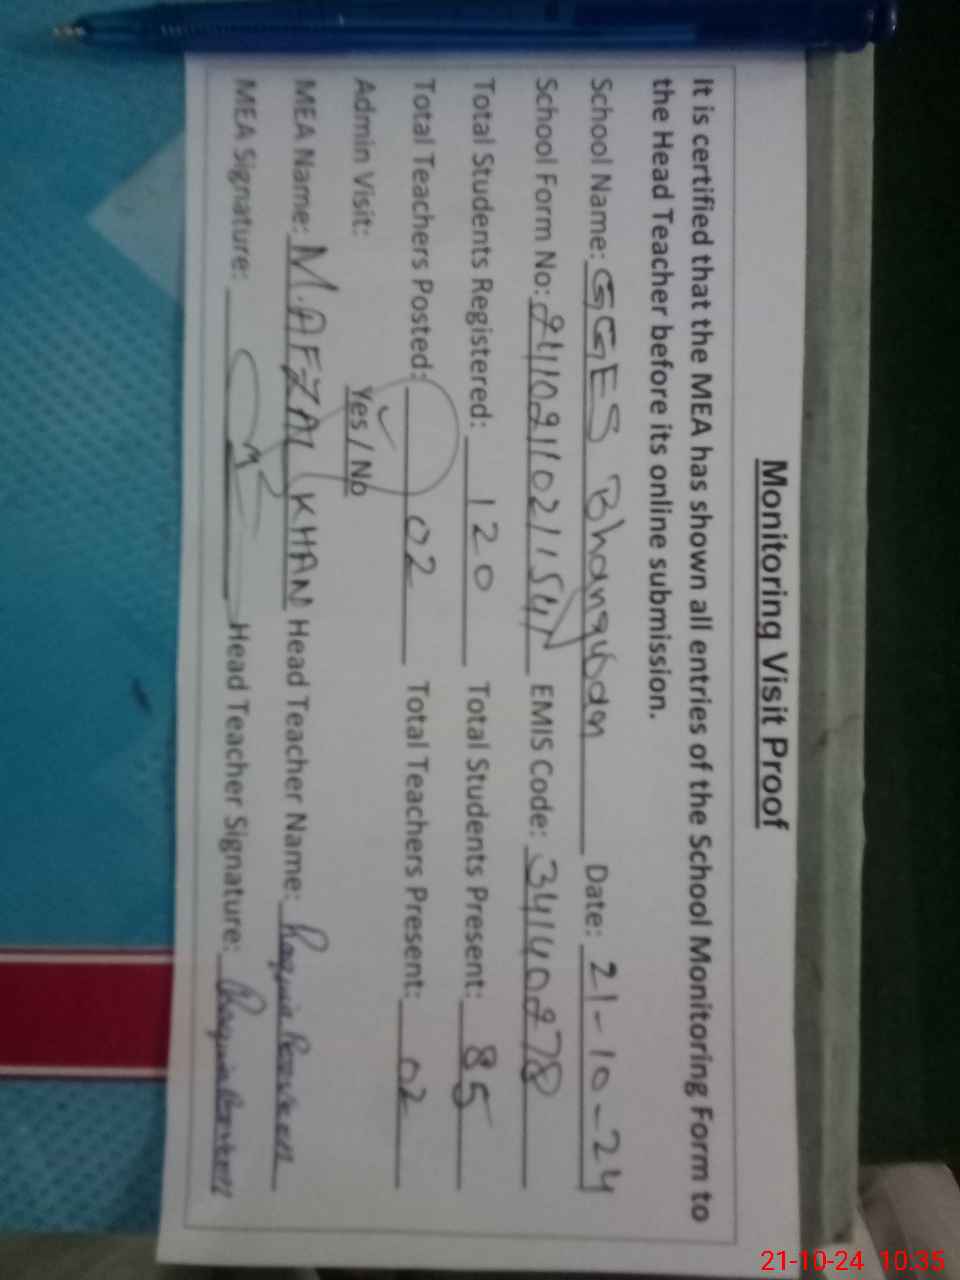 Monitoring Visit Proof
It is certified that the MEA has shown all entries of the School Monitoring Form to
the Head Teacher before its online submission.
School Name: GGES Date: 21-10-24
School Form No: EMIS Code: 34140278
Total Students Registered: 120 Total Students Present: 85
Total Teachers Posted: 02 Total Teachers Present: 02
Admin Visit: Yes / No
MEA Name: M. AFZAL KHAN Head Teacher Name: Parveen
MEA Signature: Head Teacher Signature: Parveen
21-10-24 10:35